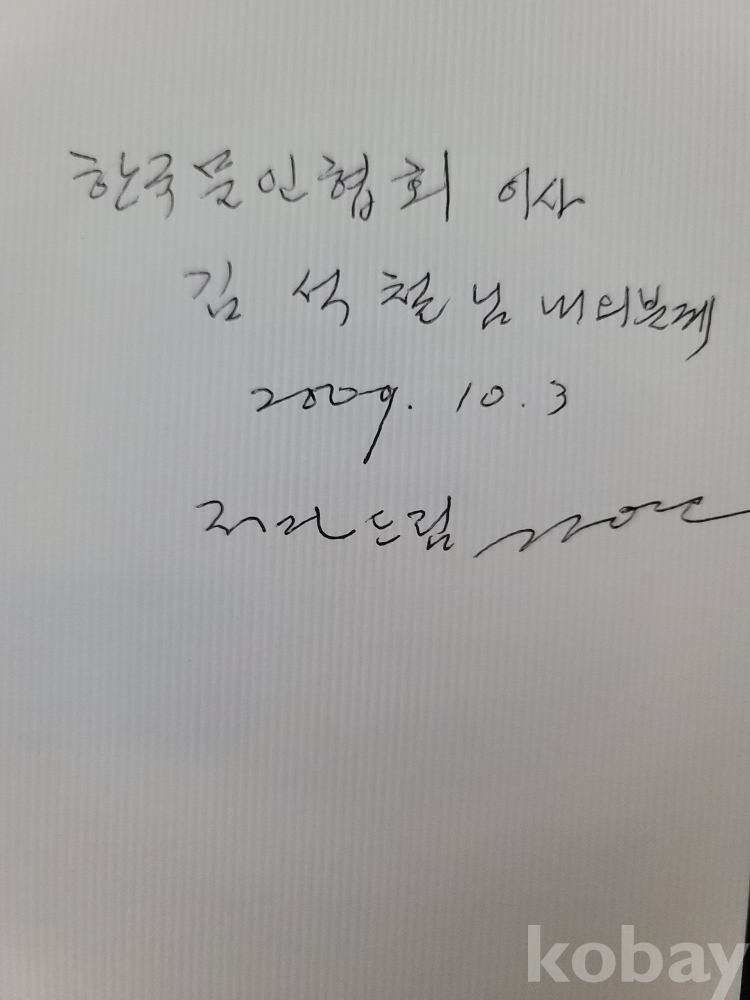 한국문인협회 이사
김석철님 내외분께
2009. 10. 3
저자드림
kobay